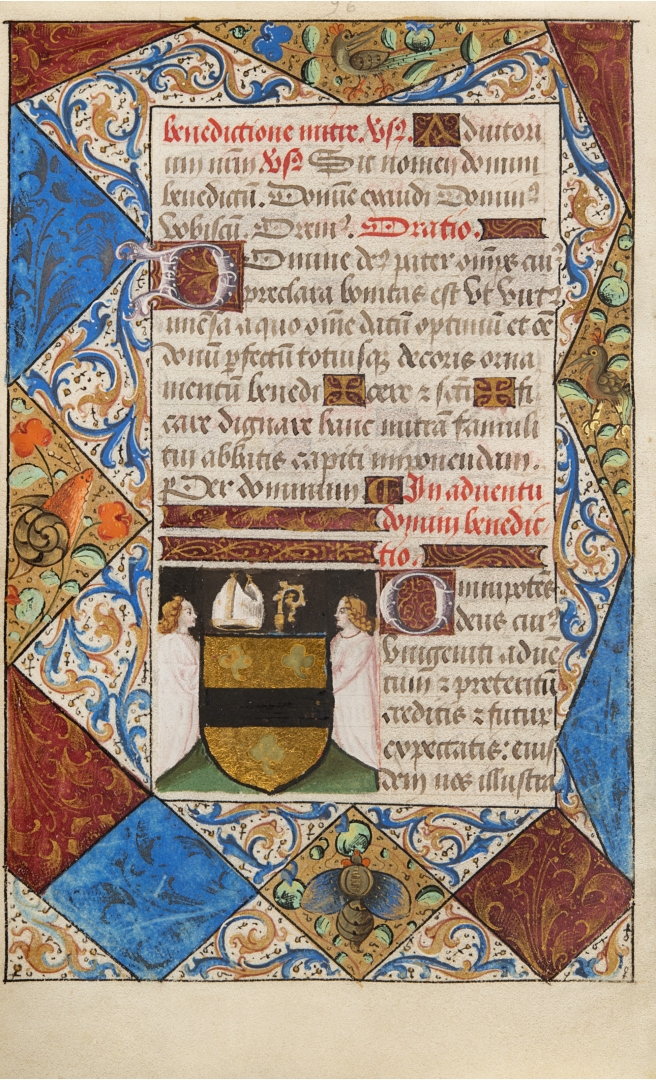 96
benedictione mitre. Vſꝰ. Adiutori
um nr̄m Vſꝰ Sit nomen domini
benedictū. Domine exaudi Dominꝰ
vobiscū. Oremꝰ. Oratio.
Domine deꝰ pater om̄ps cuiꝰ
preclara bonitas est et virtꝰ
īmēsa a quo om̄e datū optimū et oē
donū ꝑfectū totiusqꝫ decoris orna
mentū benedi✠cere ⁊ sāti✠fi
care dignare hanc mitrā famuli
tui abbatis capiti imponendam.
Per dominum In aduentu
domini benedic
tio.
Omnipotēs
deus cuiꝰ
vnigeniti aduē
tum ⁊ preteritū
creditis ⁊ futurū
expectatis: eius
dem nos illustra